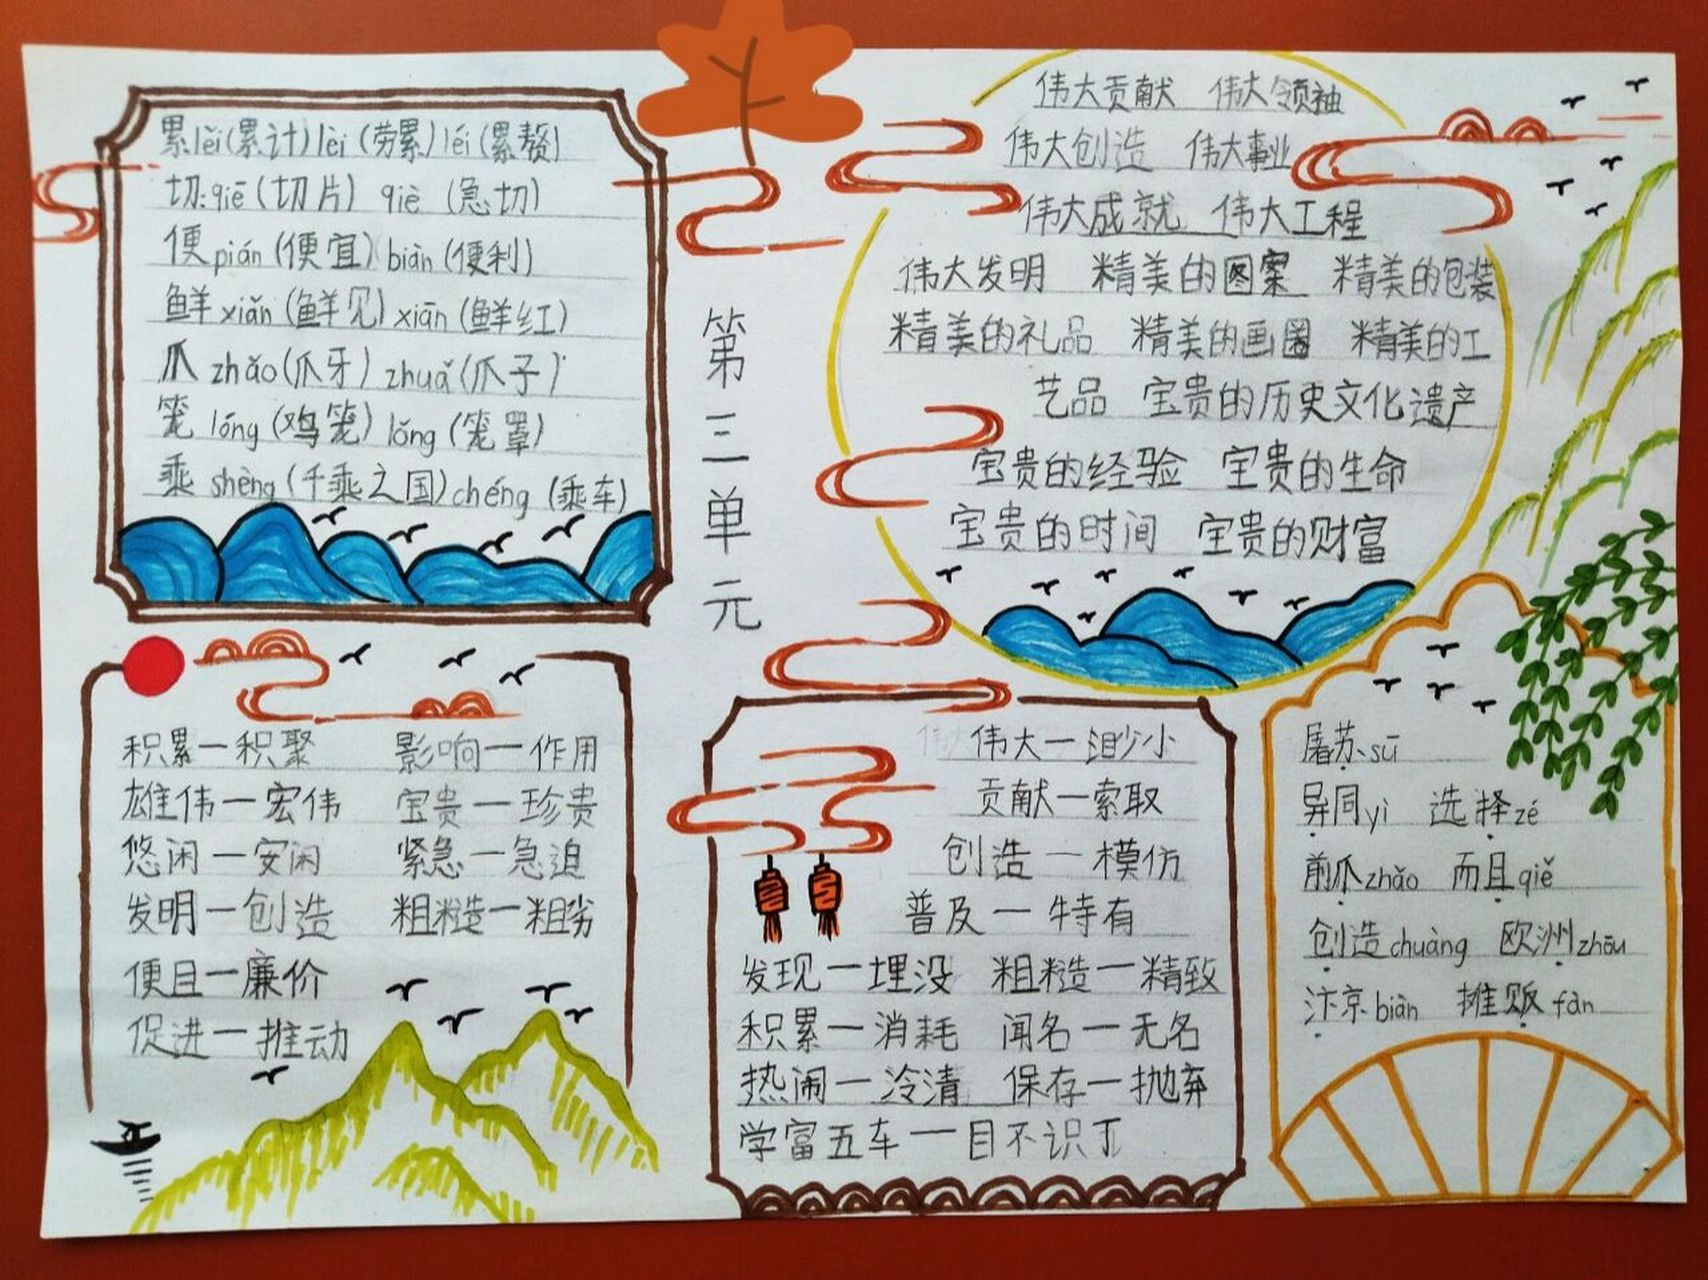 累lěi(累计)lèi(劳累)léi(累赘)
切:qiē(切片) qiè (急切)
便pián(便宜)biàn(便利)
鲜xiǎn(鲜见)xiān(鲜红)
爪 zhǎo(爪牙) zhuǎ(爪子)
笼 lóng(鸡笼)lǒng(笼罩)
乘 shèng(千乘之国)chéng(乘车)
第三单元
伟大贡献 伟大领袖
伟大创造 伟大事业
伟大成就 伟大工程
伟大发明 精美的图案 精美的包装
精美的礼品 精美的画圈 精美的工
艺品 宝贵的历史文化遗产
宝贵的经验 宝贵的生命
宝贵的时间 宝贵的财富
积累—积聚 影响—作用
雄伟—宏伟 宝贵—珍贵
悠闲—安闲 紧急—急迫
发明—创造 粗糙—粗劣
便且—廉价
促进—推动
伟大—渺小
贡献—索取
创造—模仿
普及—特有
发现—埋没 粗糙—精致
积累—消耗 闻名—无名
热闹—冷清 保存—抛弃
学富五车—目不识丁
屠苏sū
异同yì 选择zé
前爪zhǎo 而且qiě
创造chuàng 欧洲zhōu
汴京biàn 摊贩fàn